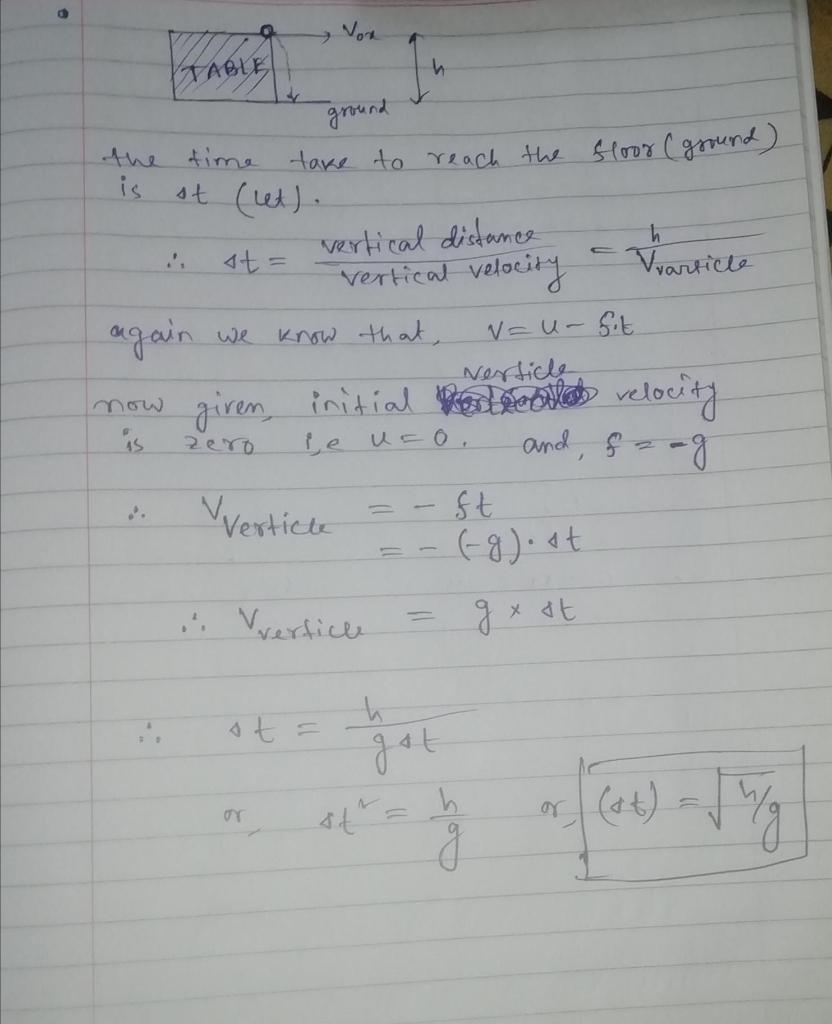 Vox
TABLE
h
ground
the time take to reach the floor (ground)
is Δt (let).
∴ Δt = vertical distance / vertical velocity = h / Vvarticle
again we know that, V = u - f.t
verticle
now given, initial velocity
is zero i,e u = 0. and, f = -g
∴ VVerticle = - ft
= - (-g)·Δt
∴ Vverticle = g × Δt
∴ Δt = h / gΔt
or, Δt² = h / g or, (Δt) = √h/g